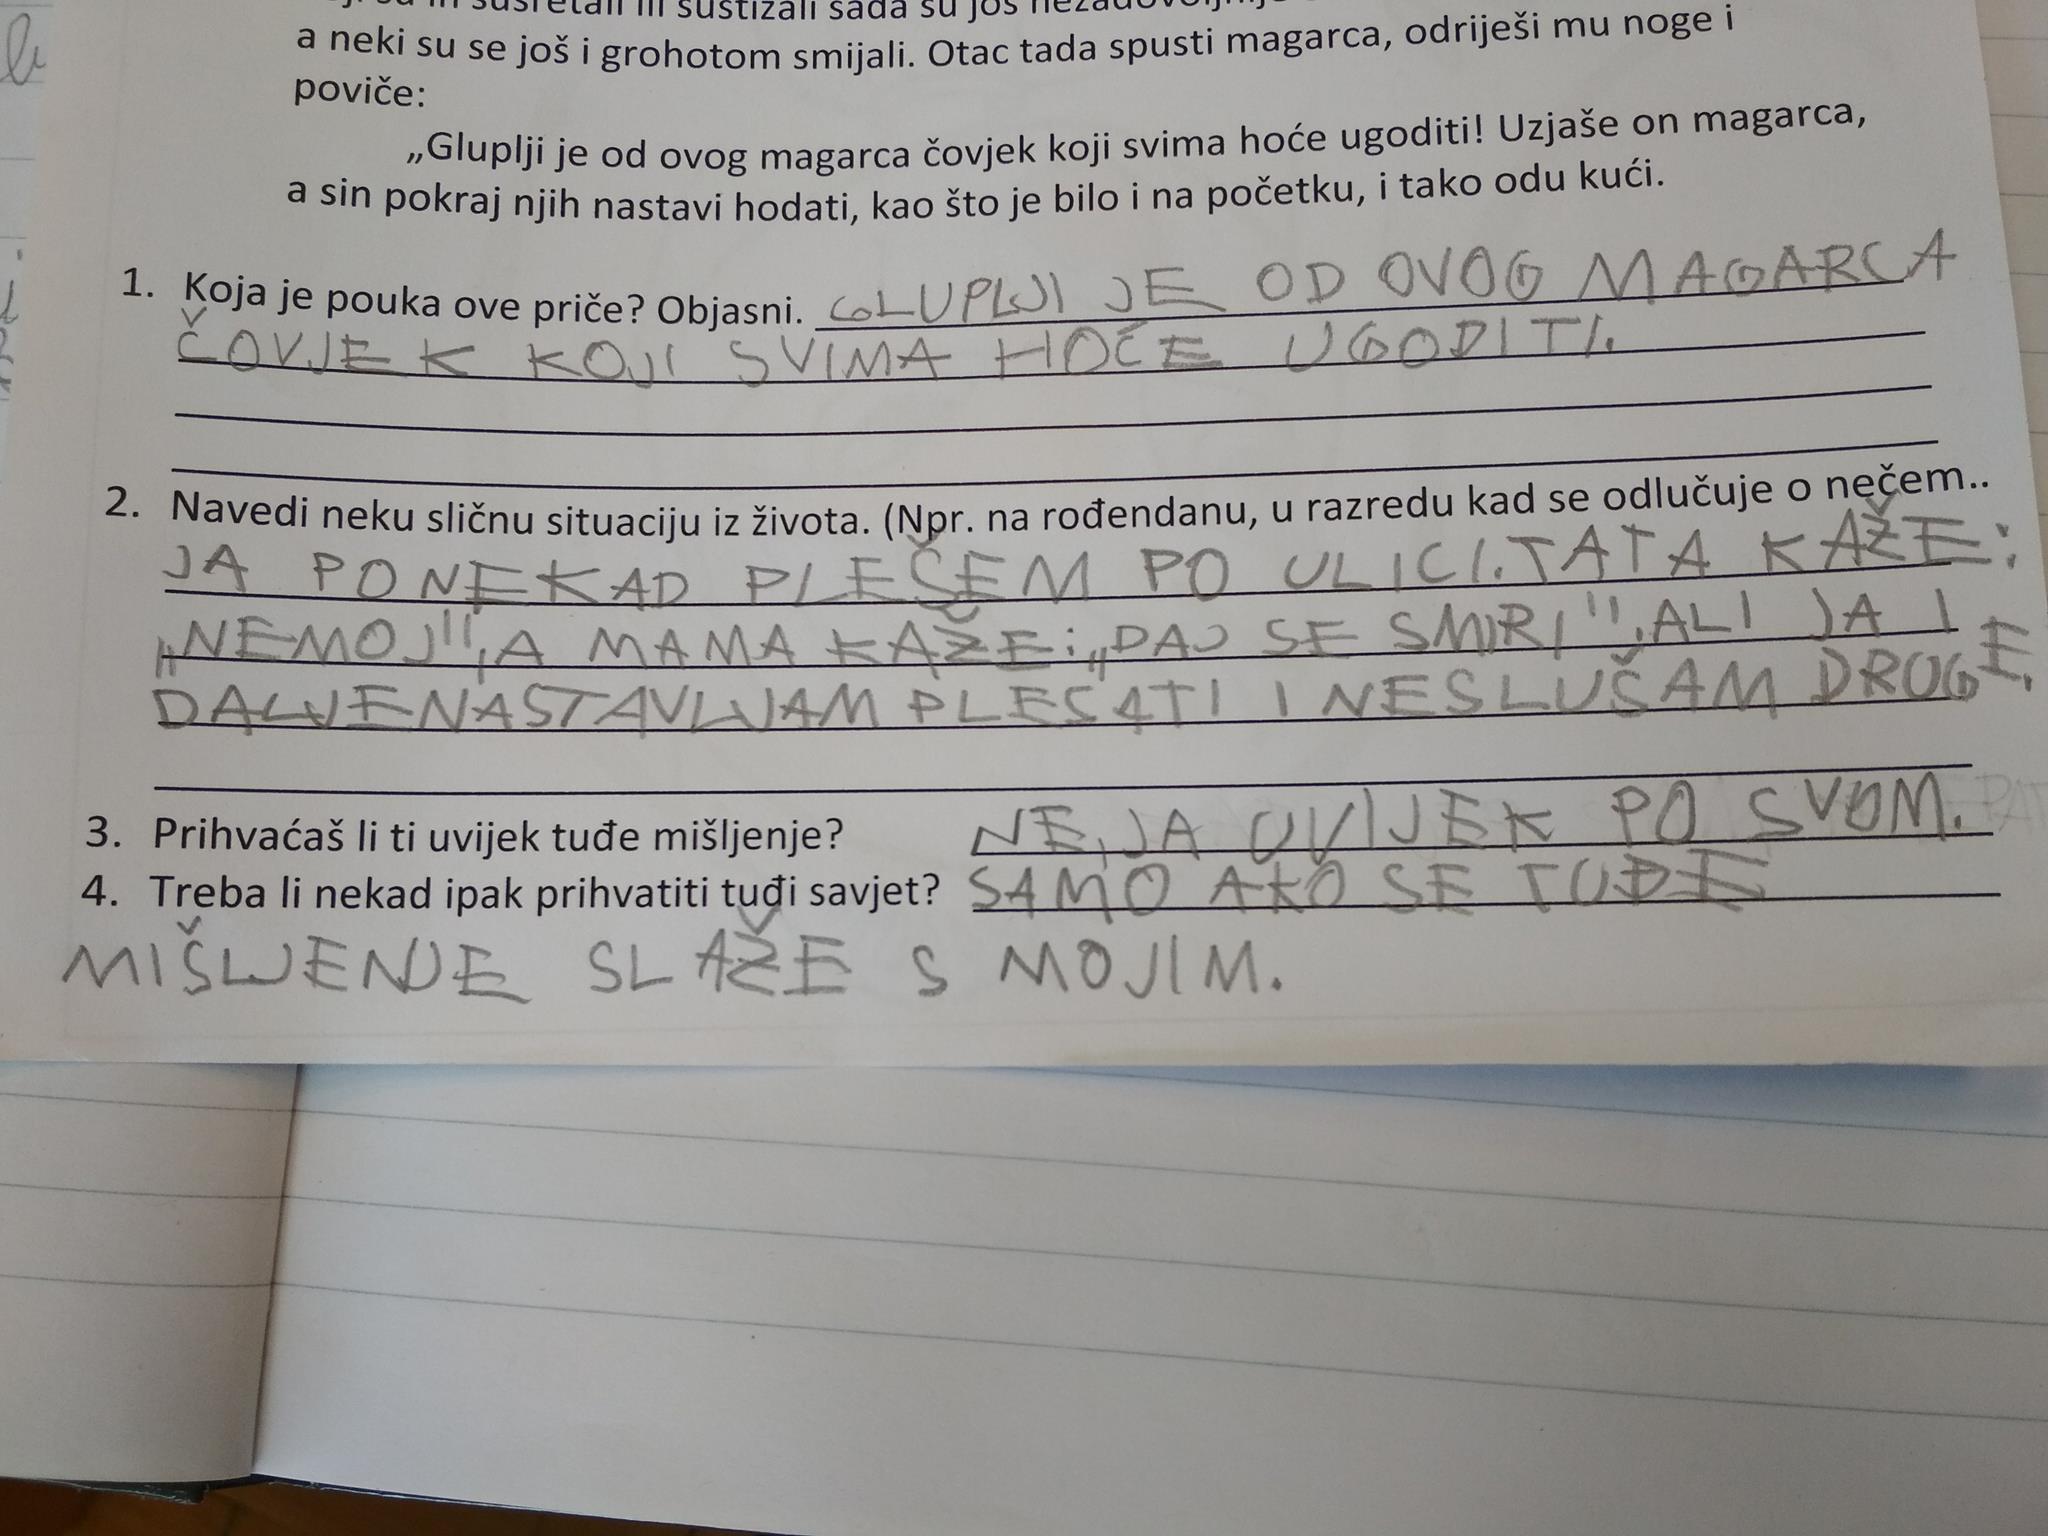 sustizali sada su još
a neki su se još i grohotom smijali. Otac tada spusti magarca, odriješi mu noge i
poviče:
„Gluplji je od ovog magarca čovjek koji svima hoće ugoditi! Uzjaše on magarca,
a sin pokraj njih nastavi hodati, kao što je bilo i na početku, i tako odu kući.
1. Koja je pouka ove priče? Objasni. GLUPLJI JE OD OVOG MAGARCA
ČOVJEK KOJI SVIMA HOĆE UGODITI.
2. Navedi neku sličnu situaciju iz života. (Npr. na rođendanu, u razredu kad se odlučuje o nečem..
JA PONEKAD PLEŠEM PO ULICI. TATA KAŽE:
„NEMOJ", A MAMA KAŽE: „DAJ SE SMIRI", ALI JA I
DALJE NASTAVLJAM PLESATI I NE SLUŠAM DRUGE.
3. Prihvaćaš li ti uvijek tuđe mišljenje? NE, JA UVIJEK PO SVOM.
4. Treba li nekad ipak prihvatiti tuđi savjet? SAMO AKO SE TUĐE
MIŠLJENJE SLAŽE S MOJIM.